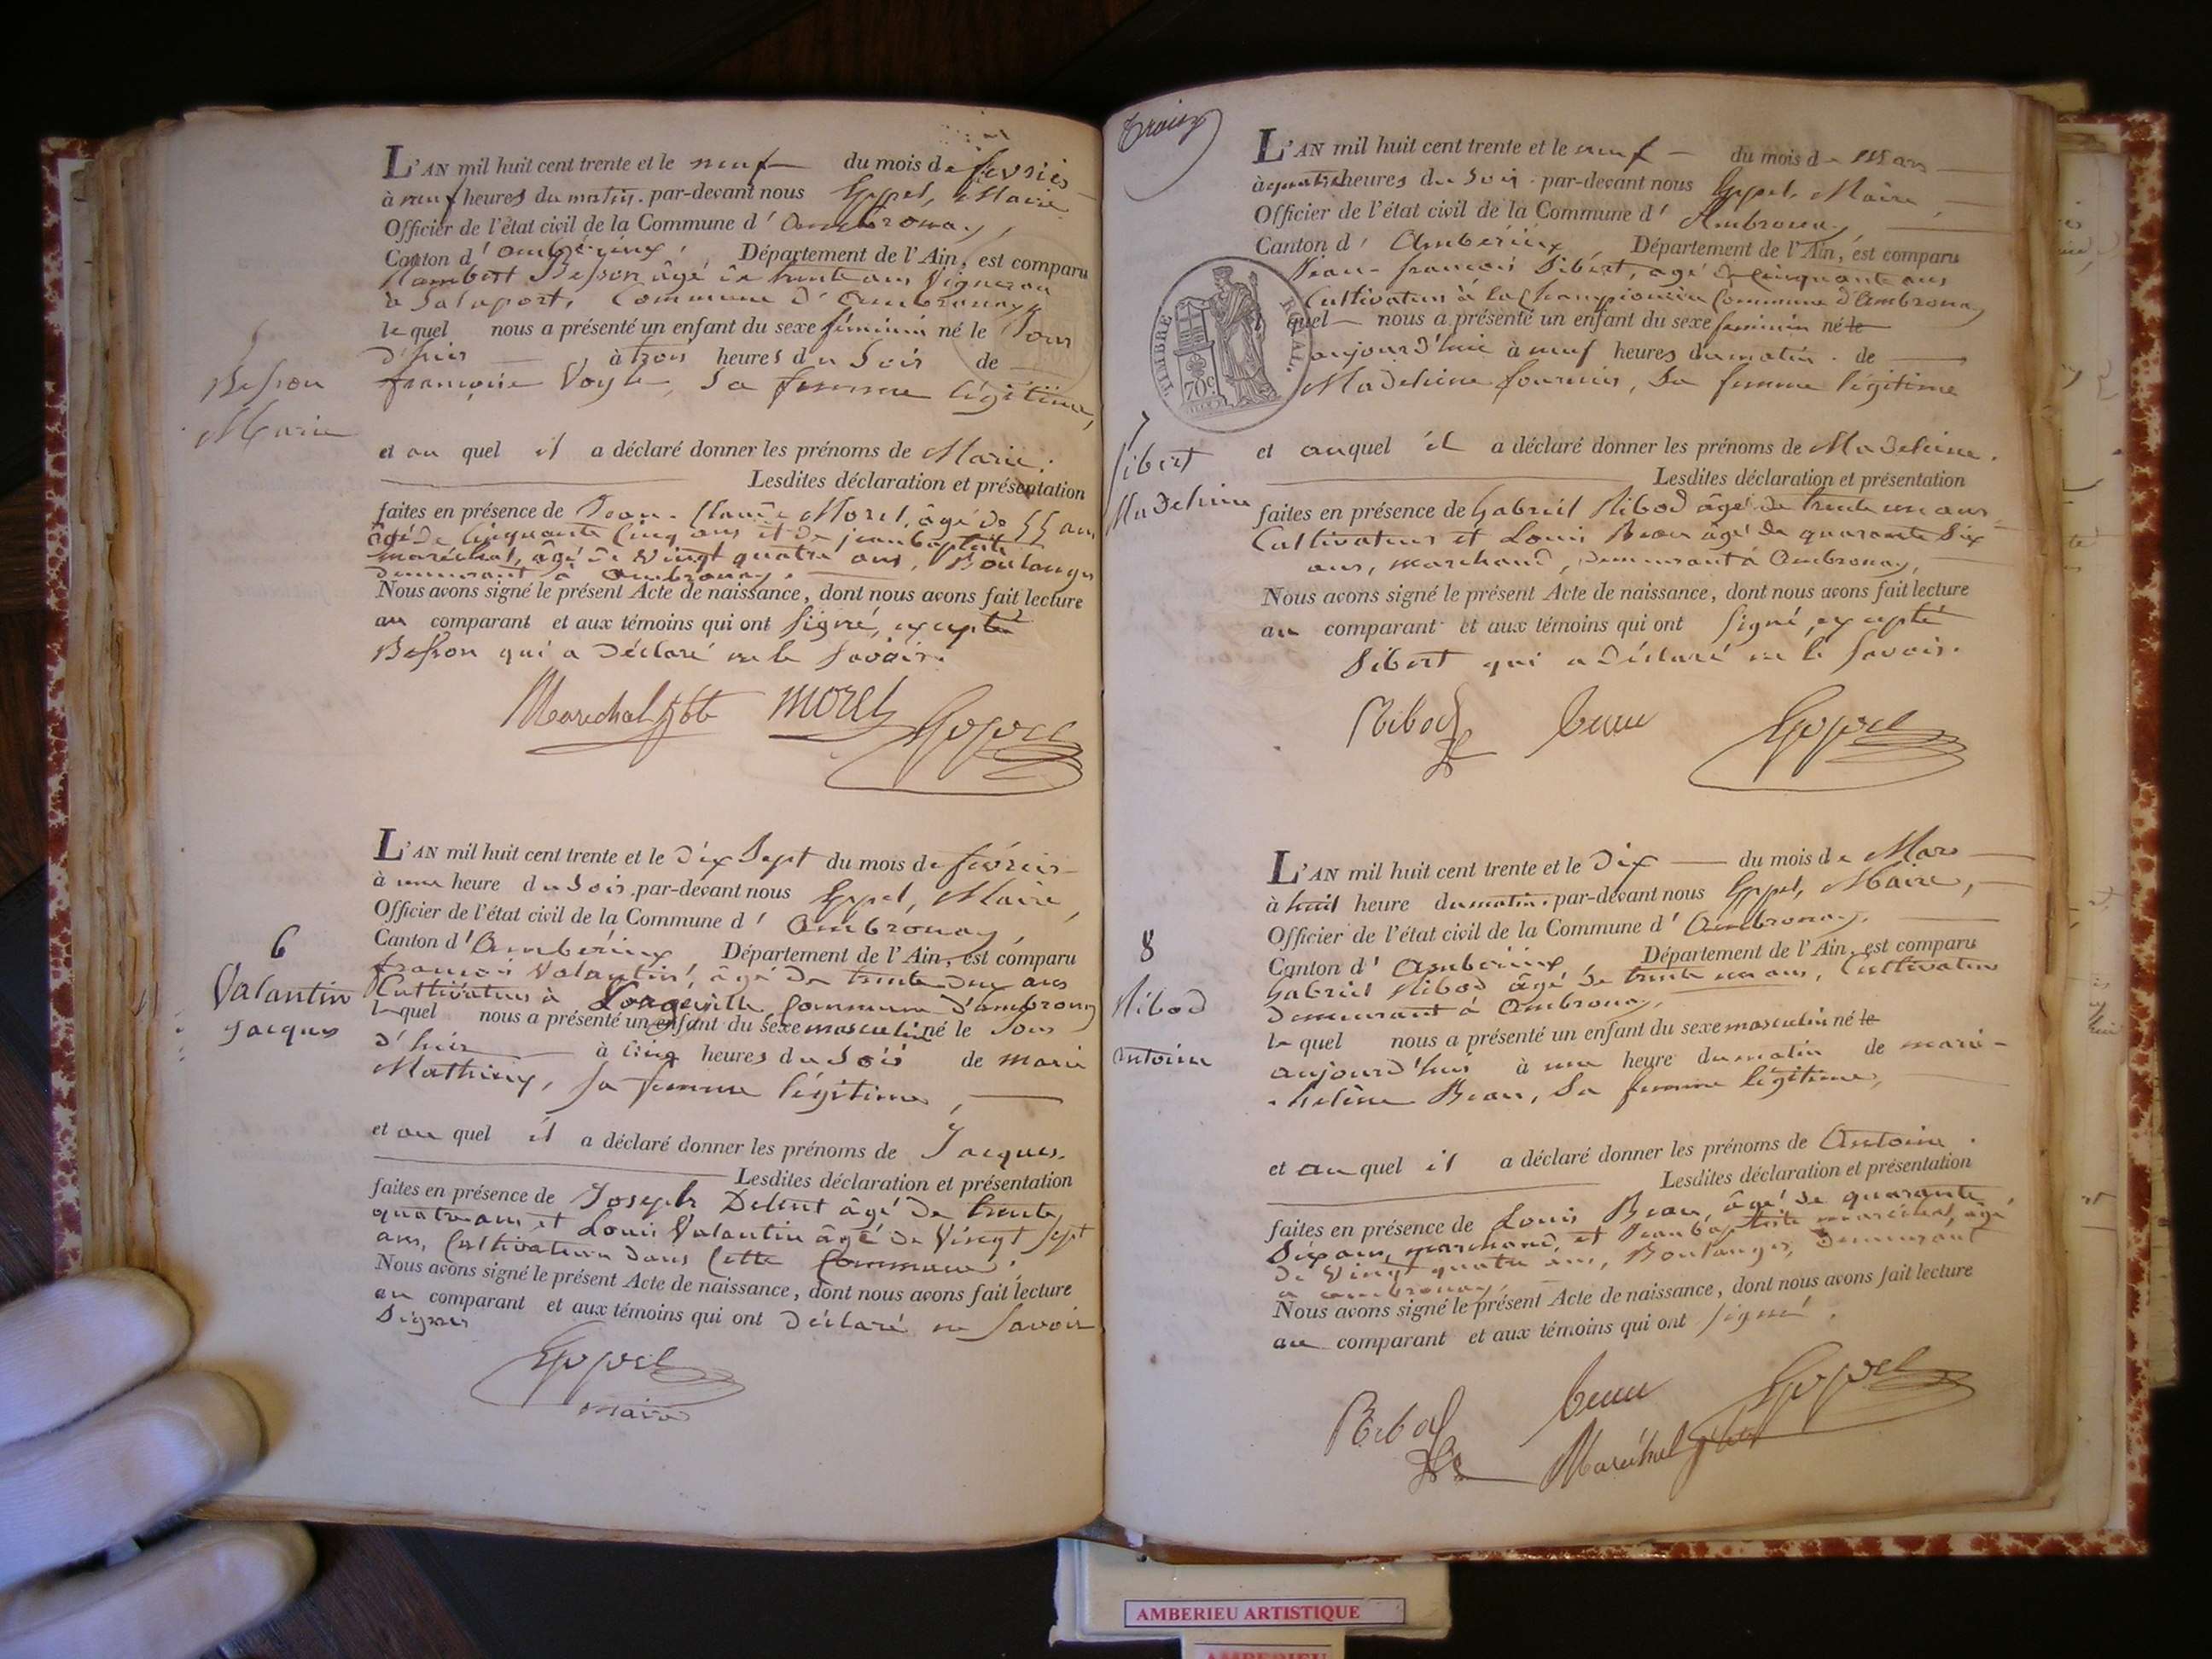 L'AN mil huit cent trente et le neuf du mois de février
à neuf heures du matin. par-devant nous Goppel, Maire
Officier de l'état civil de la Commune d' Ambronay,
Canton d' Ambérieux, Département de l'Ain, est comparu
Lambert Besson âgé de trente ans Vigneron
à Salaport, Commune d'Ambronay
lequel nous a présenté un enfant du sexe féminin né le Jour
d'hier à trois heures du Soir de
françoise Voyle, Sa femme légitime,
5
Besson
Marie
et au quel il a déclaré donner les prénoms de Marie.
Lesdites déclaration et présentation
faites en présence de Jean-Claude Morel, âgé de 55 ans
âgé de Cinquante Cinq ans et de jean baptiste
maréchal, âgé de Vingt quatre ans, Boulanger
demeurant à Ambronay.
Nous avons signé le présent Acte de naissance, dont nous avons fait lecture
au comparant et aux témoins qui ont Signé, excepté
Besson qui a Déclaré ne le Savoir.
Marechal jbte morel Goppel
L'AN mil huit cent trente et le Dix Sept du mois de février
à une heure du Soir. par-devant nous Goppel, Maire,
Officier de l'état civil de la Commune d' Ambronay,
Canton d'Ambérieux, Département de l'Ain, est comparu
françois Valantin, âgé de trente deux ans
Cultivateur à Longeville Commune d'ambronay
lequel nous a présenté un enfant du sexe masculin né le Jour
d'hier à Cinq heures du Soir de marie
Mathieu, Sa femme légitime,
6
Valantin
Jacques
et au quel il a déclaré donner les prénoms de Jacques.
Lesdites déclaration et présentation
faites en présence de Joseph Delent âgé de trente
quatre ans et Louis Valantin âgé de Vingt Sept
ans, Cultivateurs dans Cette Commune.
Nous avons signé le présent Acte de naissance, dont nous avons fait lecture
au comparant et aux témoins qui ont Déclaré ne Savoir
Signer
Goppel
maire
Troix
L'AN mil huit cent trente et le neuf du mois de Mars
à quatre heures du Soir. par-devant nous Goppel, Maire,
Officier de l'état civil de la Commune d' Ambronay,
Canton d' Ambérieux, Département de l'Ain, est comparu
Jean-françois Sibert, âgé de Cinquante ans
Cultivateur à la Championnière Commune d'Ambronay
quel nous a présenté un enfant du sexe feminin né le
aujourd'hui à neuf heures du matin. de
Madeleine fournier, Sa femme légitime
TIMBRE ROYAL.
70c
7
Sibert
Madeleine
et auquel il a déclaré donner les prénoms de Madeleine.
Lesdites déclaration et présentation
faites en présence de Gabriel Ribod âgé de trente un ans
Cultivateur et Louis Beau âgé de quarante Six
ans, marchand, demeurant à Ambronay,
Nous avons signé le présent Acte de naissance, dont nous avons fait lecture
au comparant et aux témoins qui ont Signé, excepté
Sibert qui a Déclaré ne le Savoir.
Ribod beau Goppel
L'AN mil huit cent trente et le Dix du mois de Mars
à huit heure du matin. par-devant nous Goppel, Maire,
Officier de l'état civil de la Commune d' Ambronay,
Canton d' Ambérieux, Département de l'Ain, est comparu
Gabriel Ribod âgé de trente un ans, Cultivateur
demeurant à Ambronay,
lequel nous a présenté un enfant du sexe masculin né le
aujourd'hui à une heure du matin de marie-
helène Beau, Sa femme légitime,
8
Ribod
antoine
et au quel il a déclaré donner les prénoms de Antoine.
Lesdites déclaration et présentation
faites en présence de Louis Beau, âgé de quarante
Six ans, marchand, et Jean baptiste maréchal, âgé
de Vingt quatre ans, Boulanger, demeurant
à ambronay,
Nous avons signé le présent Acte de naissance, dont nous avons fait lecture
au comparant et aux témoins qui ont signé.
Ribod beau Goppel
Maréchal jbte
AMBERIEU ARTISTIQUE
AMBERIEU